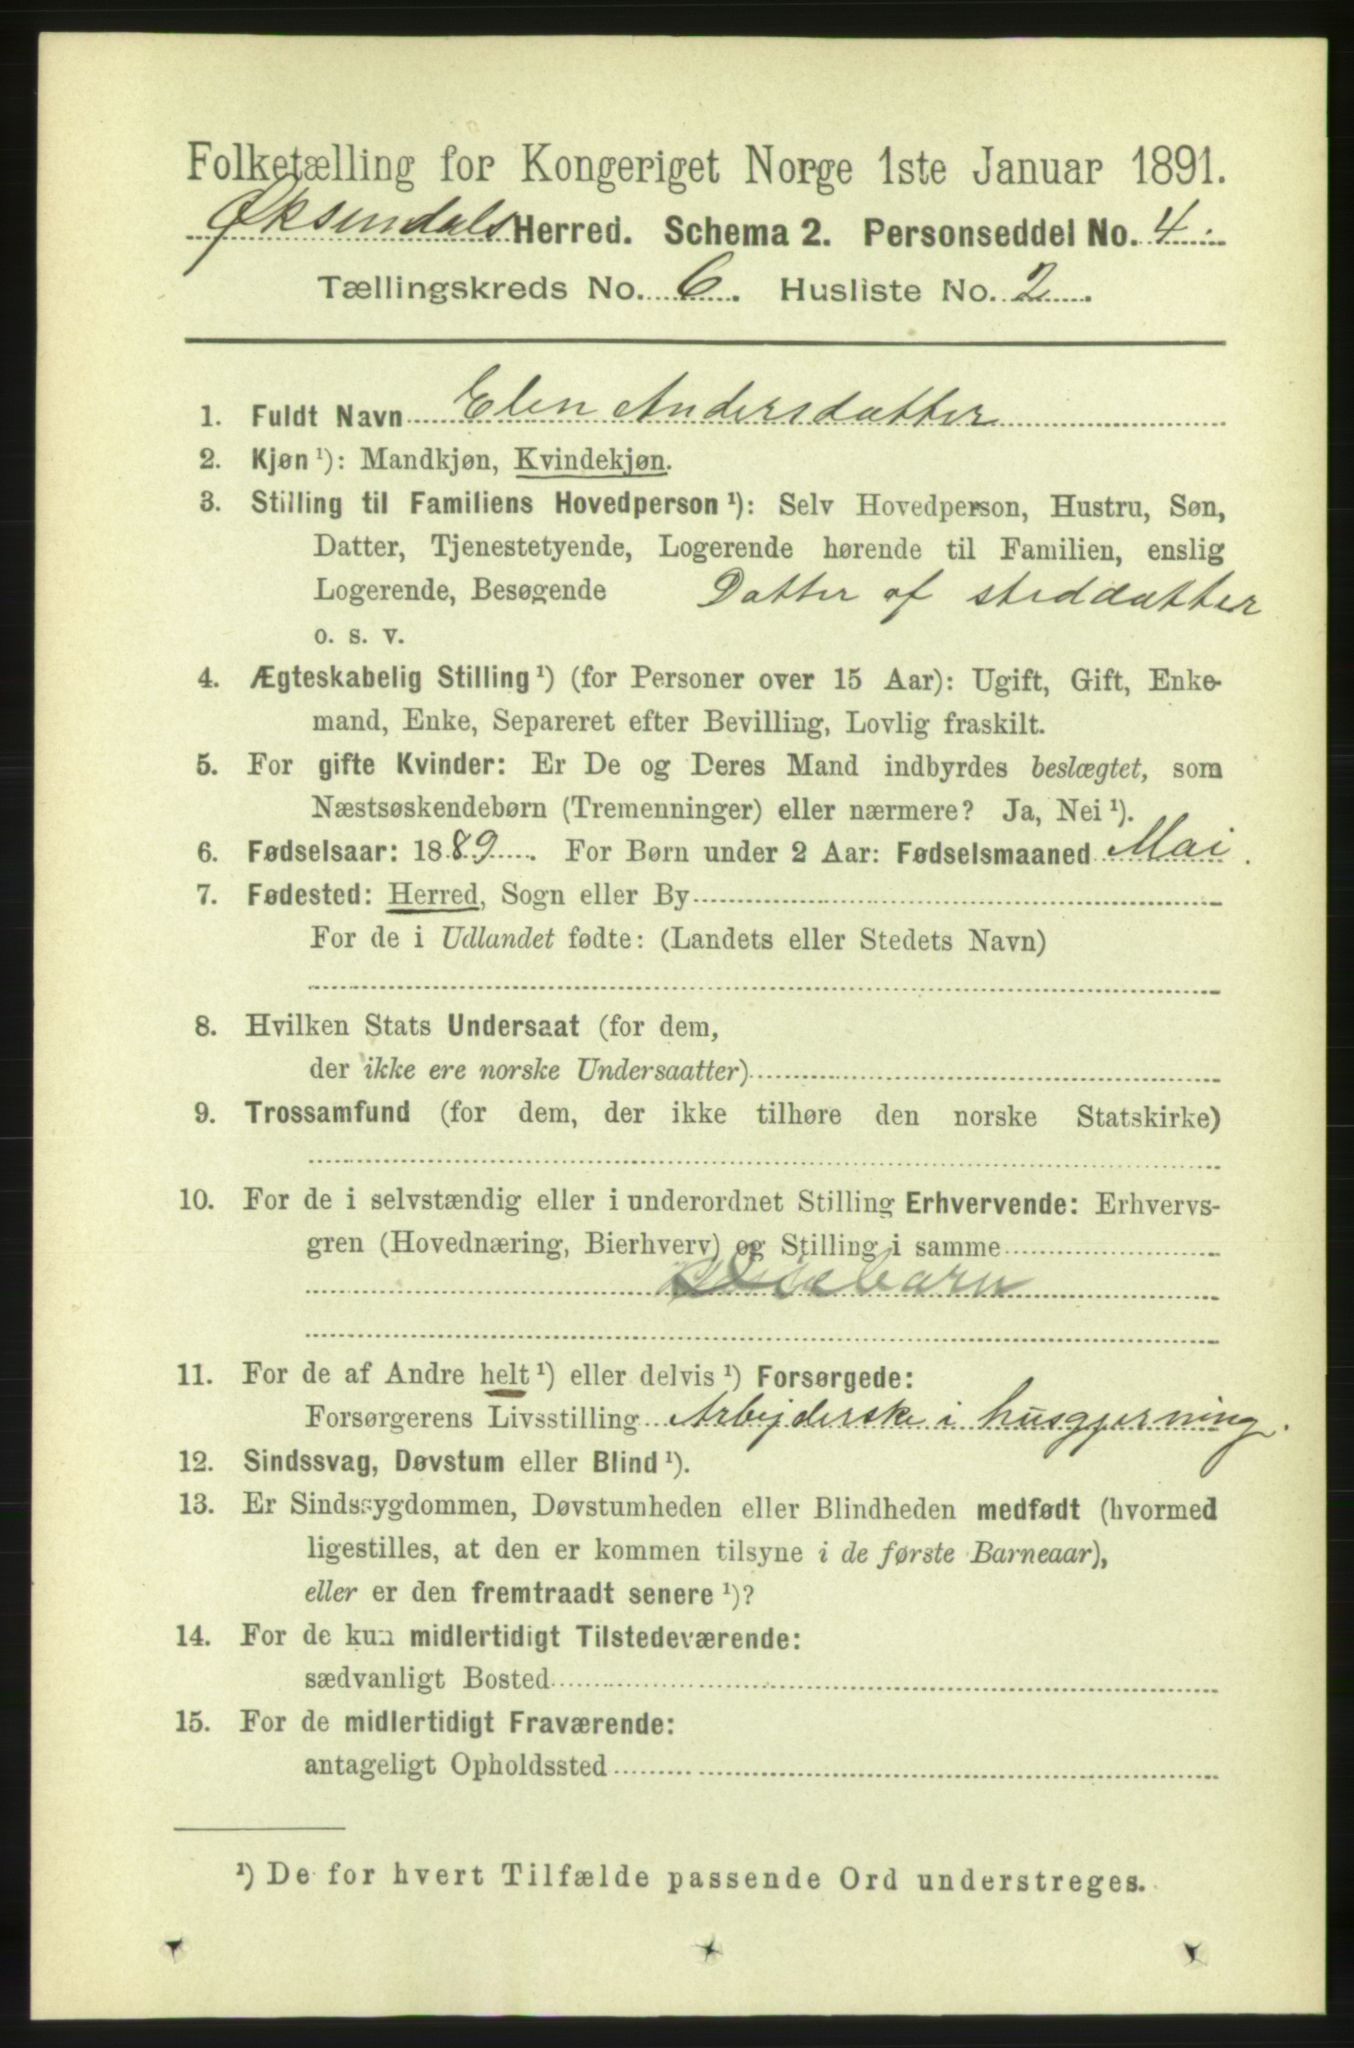 Folketælling for Kongeriget Norge 1ste Januar 1891.
Øksendals Herred. Schema 2. Personseddel No. 4.
Tællingskreds No. 6. Husliste No. 2.
1. Fuldt Navn Elen Andersdatter
2. Kjøn ¹): Mandkjøn, Kvindekjøn.
3. Stilling til Familiens Hovedperson ¹): Selv Hovedperson, Hustru, Søn,
Datter, Tjenestetyende, Logerende hørende til Familien, enslig
Logerende, Besøgende Datter af steddatter
o. s. v.
4. Ægteskabelig Stilling ¹) (for Personer over 15 Aar): Ugift, Gift, Enke-
mand, Enke, Separeret efter Bevilling, Lovlig fraskilt.
5. For gifte Kvinder: Er De og Deres Mand indbyrdes beslægtet, som
Næstsøskendebørn (Tremenninger) eller nærmere? Ja, Nei ¹).
6. Fødselsaar: 1889. For Børn under 2 Aar: Fødselsmaaned Mai.
7. Fødested: Herred, Sogn eller By
For de i Udlandet fødte: (Landets eller Stedets Navn)
8. Hvilken Stats Undersaat (for dem,
der ikke ere norske Undersaatter)
9. Trossamfund (for dem, der ikke tilhøre den norske Statskirke)
10. For de i selvstændig eller i underordnet Stilling Erhvervende: Erhvervs-
gren (Hovednæring, Bierhverv) og Stilling i samme
11. For de af Andre helt ¹) eller delvis ¹) Forsørgede:
Forsørgerens Livsstilling Arbejderske i husgjerning.
12. Sindssvag, Døvstum eller Blind ¹).
13. Er Sindssygdommen, Døvstumheden eller Blindheden medfødt (hvormed
ligestilles, at den er kommen tilsyne i de første Barneaar),
eller er den fremtraadt senere ¹)?
14. For de kun midlertidigt Tilstedeværende:
sædvanligt Bosted
15. For de midlertidigt Fraværende:
antageligt Opholdssted
¹) De for hvert Tilfælde passende Ord understreges.